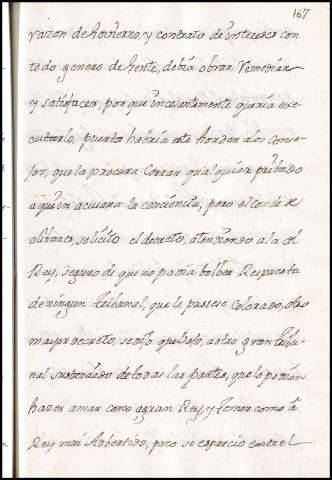 167
razon de Govierno, y contrato de intereses con
todo genero de Gente, debia obrar, Remediar
y satisfacer, porque incesantemente queria exe-
cutarlo, puerta habria este horden a los conse-
jos, que la procura cerrar qualquier pribado
a quien acusara la conciencia, pero el conde de
olibares, solicito el decreto, atendiendo a la el
Rey, seguro de que no podia bolber Respuesta
de ningun tribunal, que le pusiese colorado,
mayor decreto, se dio que bajo, a otro gran tribu-
nal sustanciado de todas las partes, que lo podian
hazer amar como a gran Rey, y temer como a
Rey mui Advertido, poco se esparcio entre el